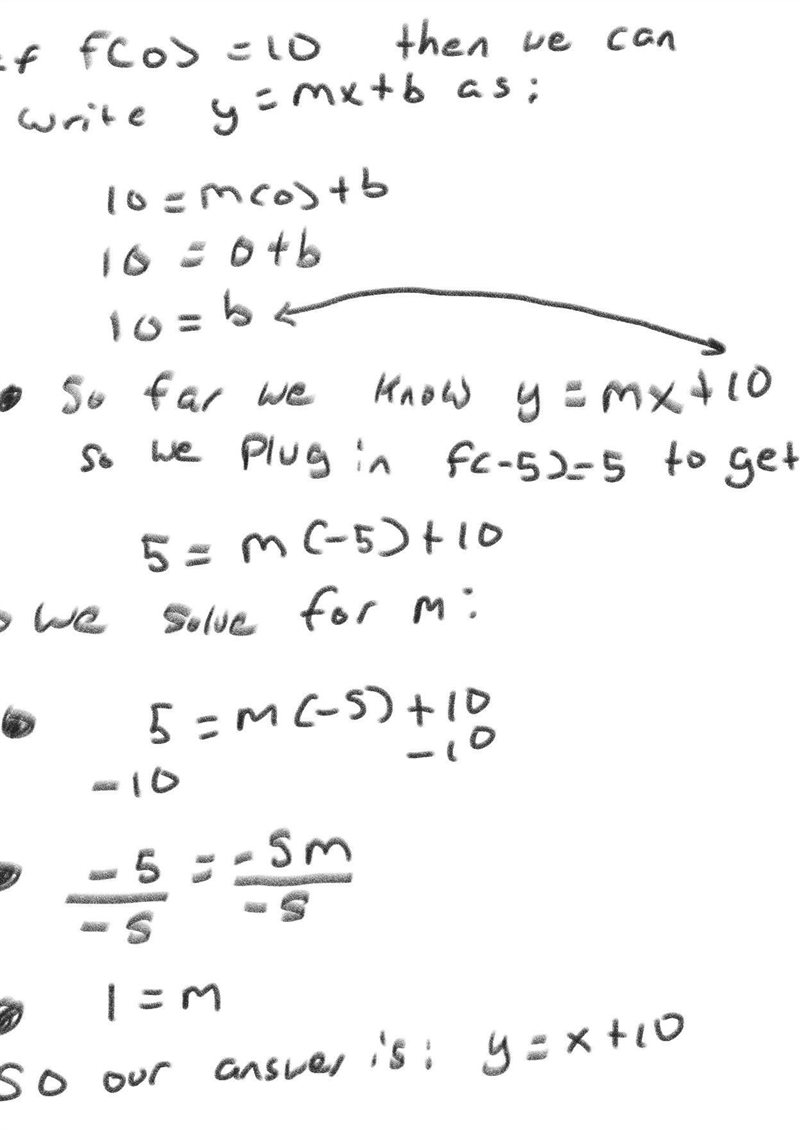 if f(0) = 10 then we can
write y = mx + b as:
10 = m(0) + b
10 = 0 + b
10 = b
So far we know y = mx + 10
so we plug in f(-5) = 5 to get
5 = m(-5) + 10
we solve for m:
5 = m(-5) + 10
-10 -10
-5 = -5m
-5 -5
1 = m
So our answer is: y = x + 10